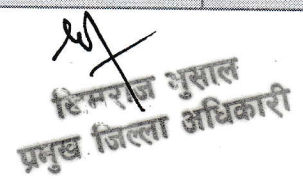 टिमराज भुसाल
प्रमुख जिल्ला अधिकारी